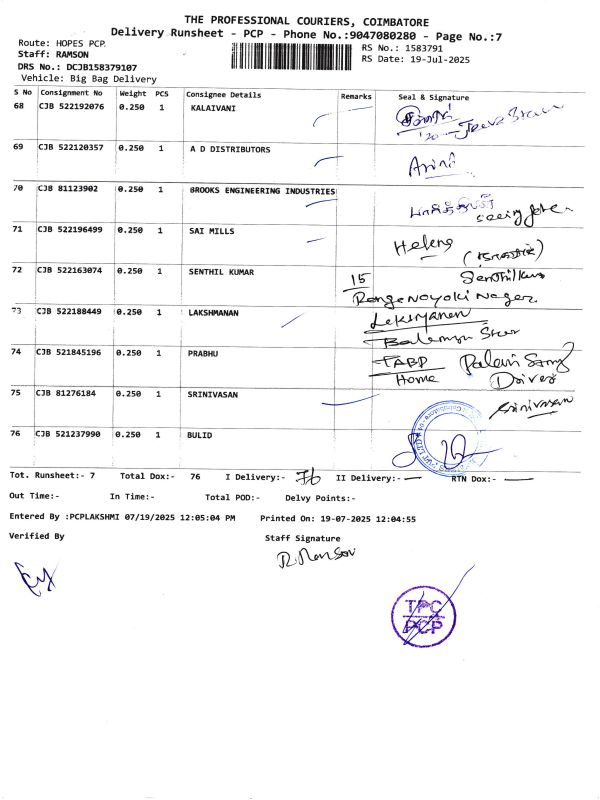 THE PROFESSIONAL COURIERS, COIMBATORE
Delivery Runsheet - PCP - Phone No.:9047080280 - Page No.:7
Route: HOPES PCP.
RS No.: 1583791
Staff: RAMSON
RS Date: 19-Jul-2025
DRS No.: DCJB158379107
Vehicle: Big Bag Delivery
S No Consignment No Weight PCS Consignee Details Remarks Seal & Signature
68 CJB 522192076 0.250 1 KALAIVANI
69 CJB 522120357 0.250 1 A D DISTRIBUTORS
70 CJB 81123902 0.250 1 BROOKS ENGINEERING INDUSTRIES
71 CJB 522196499 0.250 1 SAI MILLS Helens
72 CJB 522163074 0.250 1 SENTHIL KUMAR 15 Senthilkum
73 CJB 522188449 0.250 1 LAKSHMANAN
74 CJB 521845196 0.250 1 PRABHU
Home Driver
75 CJB 81276184 0.250 1 SRINIVASAN Srinivasan
76 CJB 521237990 0.250 1 BULID
Tot. Runsheet:- 7 Total Dox:- 76 I Delivery:- 76 II Delivery:- — RTN Dox:- —
Out Time:- In Time:- Total POD:- Delvy Points:-
Entered By :PCPLAKSHMI 07/19/2025 12:05:04 PM Printed On: 19-07-2025 12:04:55
Verified By Staff Signature
TPC
PCP